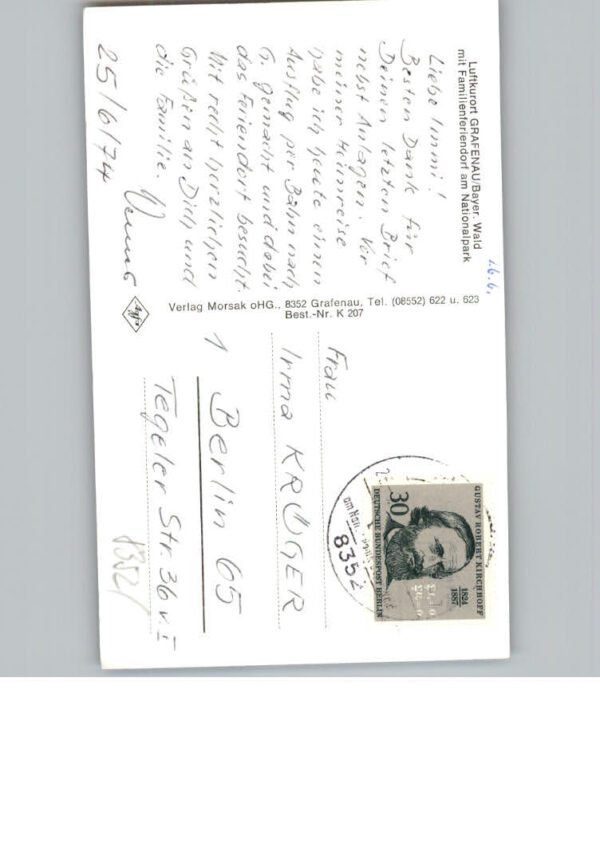 Luftkurort GRAFENAU/Bayer. Wald
mit Familienferiendorf am Nationalpark
Liebe Immi!
Besten Dank für
Deinen letzten Brief
nebst Anlagen. Vor
meiner Heimreise
habe ich heute einen
Ausflug per Bahn nach
G. gemacht und dabei
das Feriendorf besucht.
Mit recht herzlichen
Grüßen an Dich und
die Familie.
25/6/74
Verlag Morsak oHG., 8352 Grafenau, Tel. (08552) 622 u. 623
Best.-Nr. K 207
Agfa
GUSTAV ROBERT KIRCHHOFF
1824
1887
30
DEUTSCHE BUNDESPOST BERLIN
8352
Frau
Irma KRÜGER
1 Berlin 65
Tegeler Str. 36 v. I
8352/